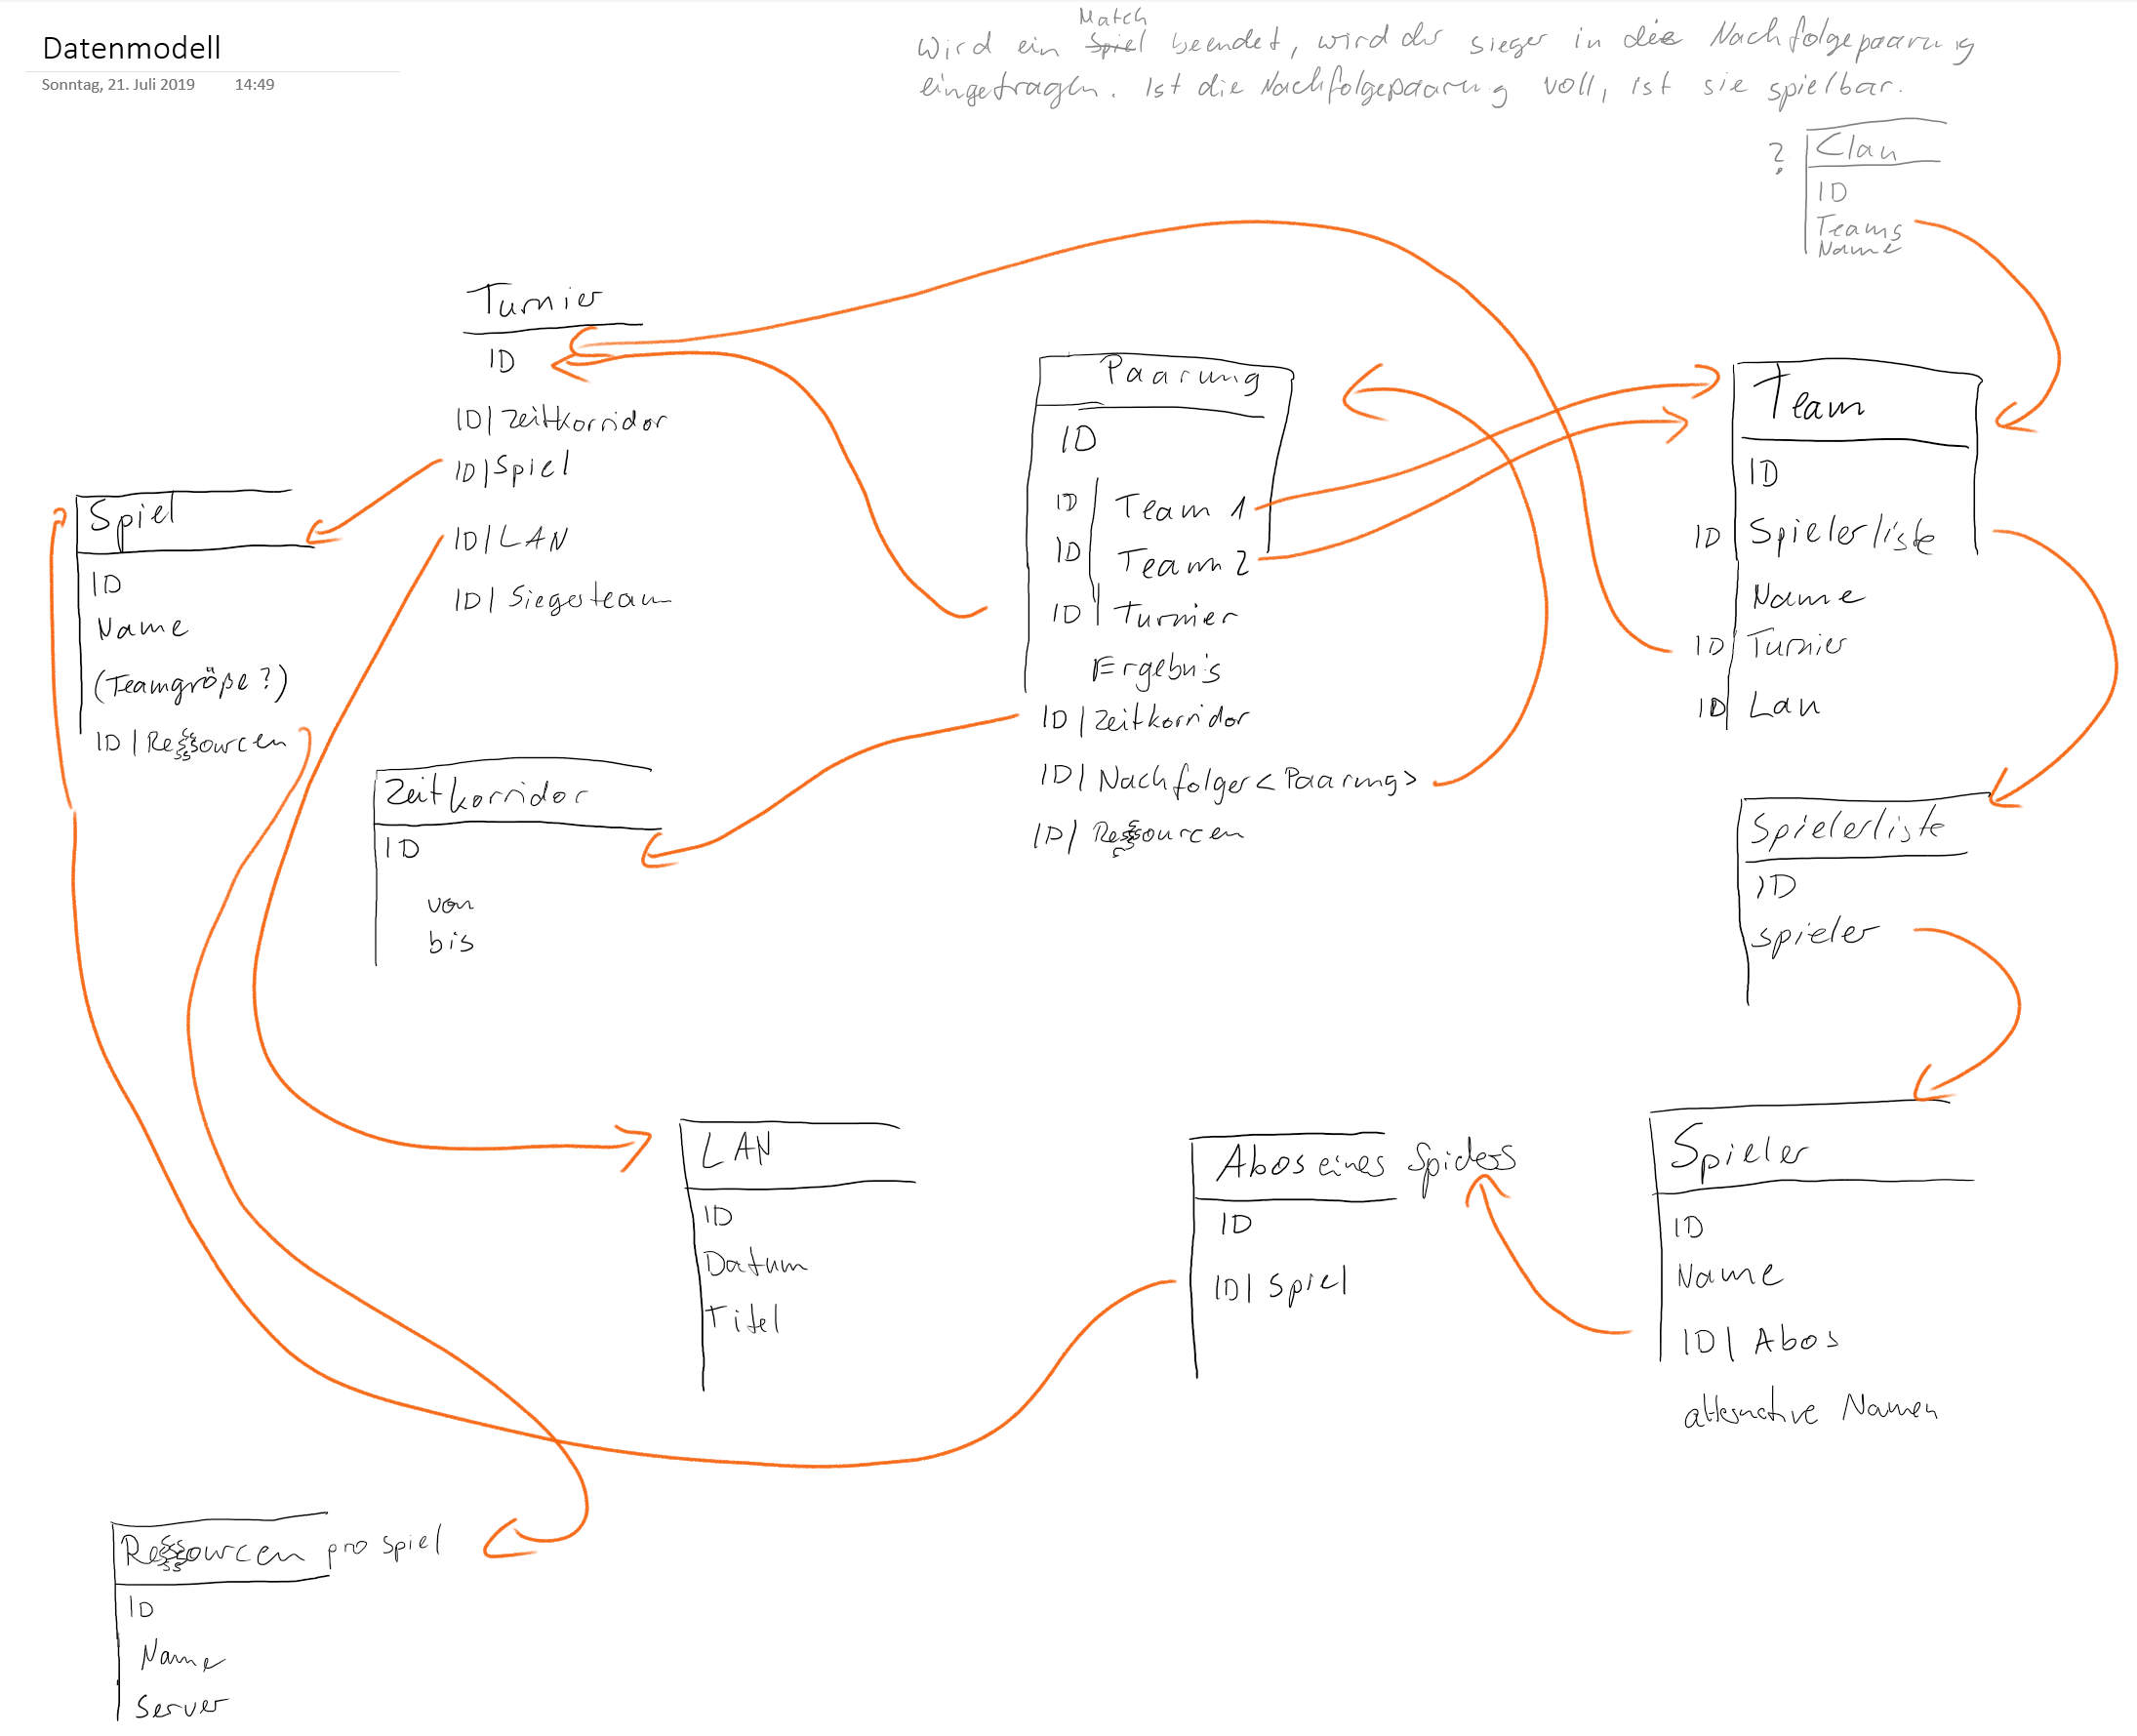 Datenmodell
Sonntag, 21. Juli 2019 14:49
Match
Wird ein Spiel beendet, wird der Sieger in die Nachfolgepaarung
eingetragen. Ist die Nachfolgepaarung voll, ist sie spielbar.
? Clan
ID
Teams
Name
Turnier
ID
ID | Zeitkorridor
ID | Spiel
ID | LAN
ID | Siegerteam
Paarung
ID
ID | Team 1
ID | Team 2
ID | Turnier
Ergebnis
ID | Zeitkorridor
ID | Nachfolger <Paarung>
ID | Ressourcen
Team
ID
ID | Spielerliste
Name
ID | Turnier
ID | Lan
Spiel
ID
Name
(Teamgröße?)
ID | Ressourcen
Zeitkorridor
ID
von
bis
Spielerliste
ID
Spieler
LAN
ID
Datum
Titel
Abos eines Spielers
ID
ID | Spiel
Spieler
ID
Name
ID | Abos
alternative Namen
Ressourcen pro Spiel
ID
Name
Server